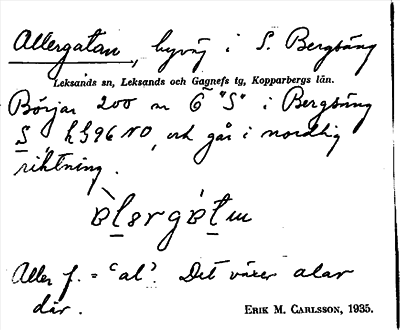 Allergatan, byväg i S. Bergsäng
Leksands sn, Leksands och Gagnefs tg, Kopparbergs län.
Börjar 200 m G "S" i Bergsäng
S, h 396 NO, och går i nordlig
riktning.
Aller f. = 'al'. Det växer alar
där.
ERIK M. CARLSSON, 1935.